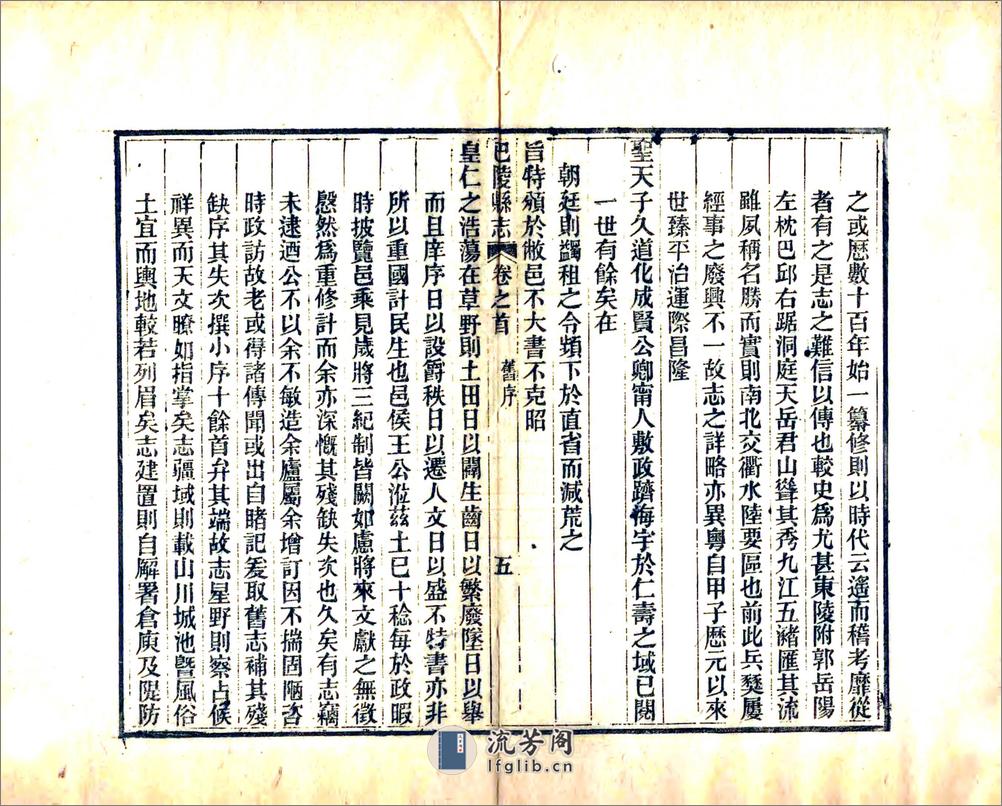 之或歷數十百年始一纂修則以時代云遙而稽考靡從
者有之是志之難信以傳也較史爲尤甚東陵附郭岳陽
左枕巴邱右踞洞庭天岳君山聳其秀九江五瀦匯其流
雖夙稱名勝而實則南北交衢水陸要區也前此兵燹屢
經事之廢興不一故志之詳略亦異粵自甲子歷元以來
世臻平治運際昌隆
聖天子久道化成賢公卿甯人敷政躋海宇於仁壽之域已閱
一世有餘矣在
朝廷則蠲租之令頻下於直省而減荒之
旨特頒於敝邑不大書不克昭
巴陵縣志 卷之首 舊序 五
皇仁之浩蕩在草野則土田日以闢生齒日以繁廢墜日以舉
而且庠序日以設爵秩日以遷人文日以盛不特書亦非
所以重國計民生也邑侯王公涖茲土已十稔每於政暇
時披覽邑乘見歲將三紀制皆闕如慮將來文獻之無徵
慇然爲重修計而余亦深慨其殘缺失次也久矣有志竊
未逮迺公不以余不敏造余廬屬余增訂因不揣固陋咨
時政訪故老或得諸傳聞或出自睹記爰取舊志補其殘
缺序其失次撰小序十餘首弁其端故志星野則察占候
祥異而天文瞭如指掌矣志疆域則載山川城池暨風俗
土宜而輿地較若列眉矣志建置則自廨署倉庾及隄防
流芳阁
lfglib.cn